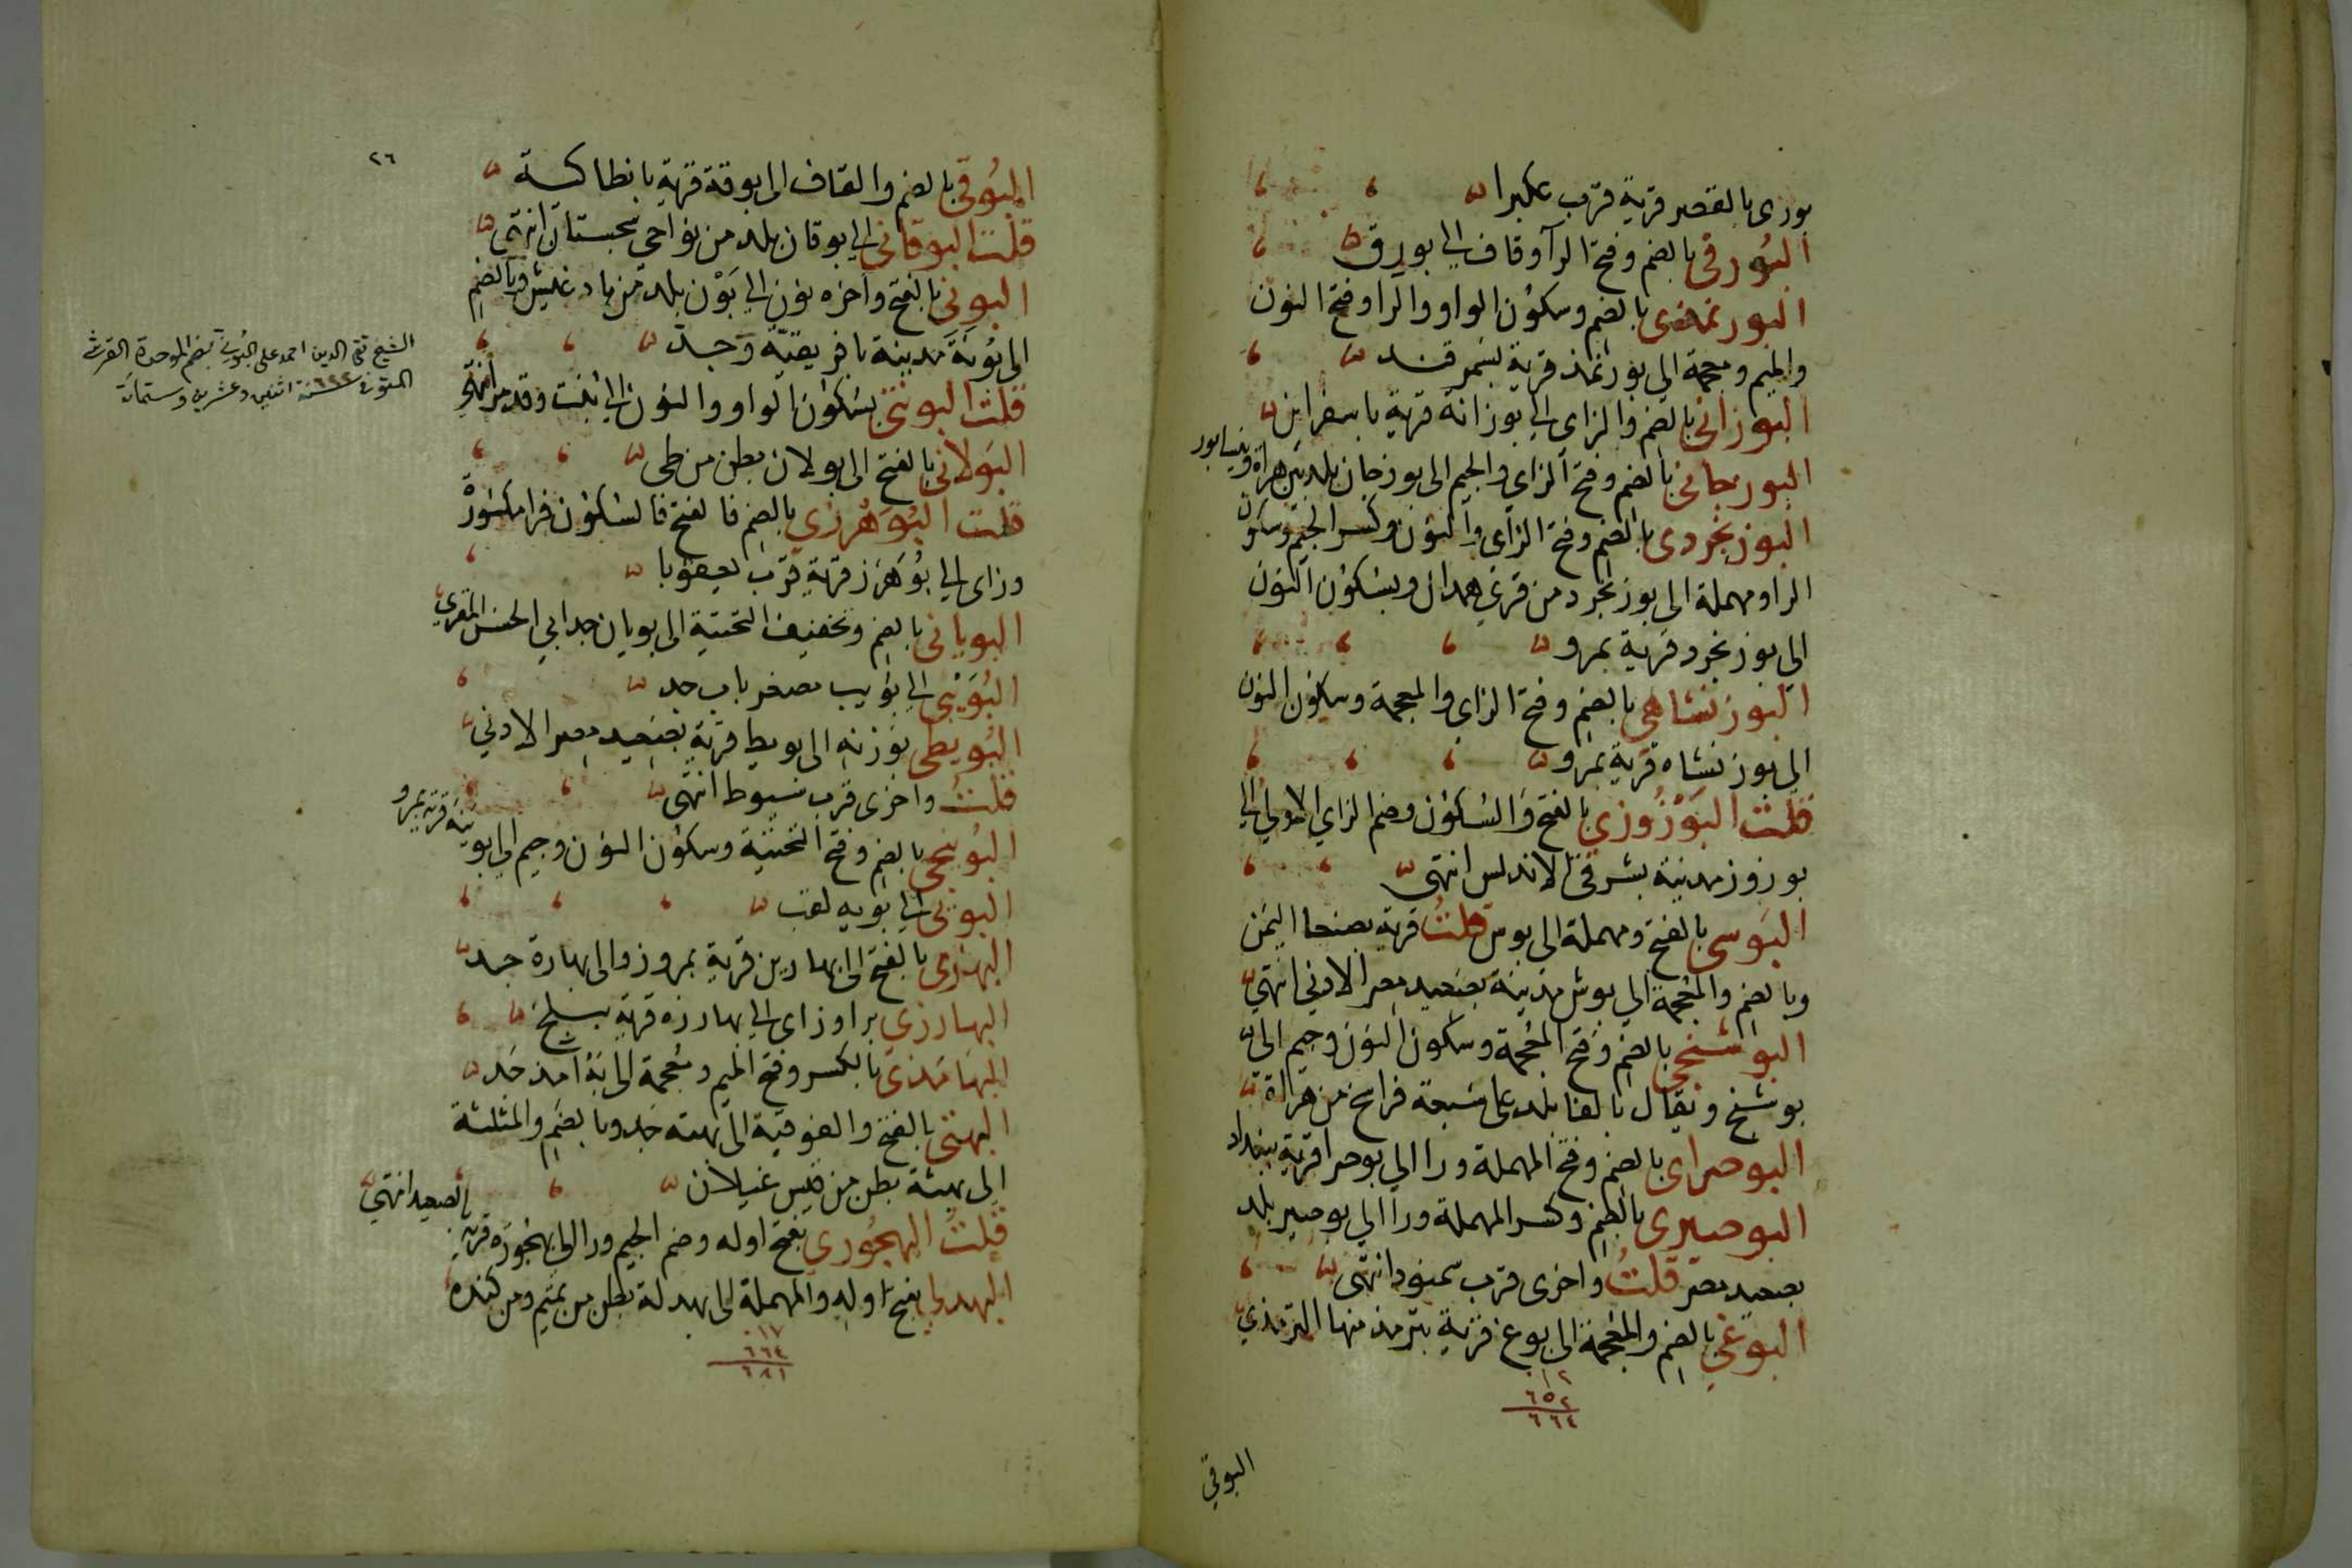 بورى بالقصر قرية قرب عكبرا
البُورقى بالضم وفتح الرآ وقاف الى بورق
البورنمذى بالضم وسكون الواو والرا وفتح النون
والميم ومعجمة الى بورنمذ قرية بسمرقند
البوزانى بالضم والزاى الى بوزانة قرية باسفراين
البوزجانى بالضم وفتح الزاى والجيم الى بوزجان بلد بين هراة ونيسابور
البوزنجردى بالضم وفتح الزاى والنون وكسر الجيم وسكون
الرا ومهملة الى بوزنجرد من قرى همدان وبسكون النون
الى بوزنجرد قرية بمرو
البوزنشاهى بالضم وفتح الزاى والمعجمة وسكون النون
الى بوزنشاه قرية بمرو
قلت البَوْزُوزى بالفتح والسكون وضم الزاي الاولى الى
بوزوز مدينة بشرقى الاندلس انتهى
البَوسى بالفتح ومهملة الى بوس قلتُ قرية بصنعا اليمن
وبالضم والمعجمة الى بوش مدينة بصعيد مصر الادنى انتهى
البوشنجى بالضم وفتح المعجمة وسكون النون وجيم الى
بوشنج ويقال بالفا بلد على سبعة فراسخ من هراة
البوصراى بالضم وفتح المهملة ورا الى بوصرا قرية ببغداد
البوصيرى بالضم وكسر المهملة ورا الى بوصير بلد
بصعيد مصر قلتُ واخرى قرب سمنود انتهى
البوغى بالضم والمعجمة الى بوغ قرية بترمذ منها الترمذي
١٢
٦٥٢
٦٦٤
البوقي
٢٦
البُوقى بالضم والقاف الى بوقة قرية بانطاكية
قلت البوقانى الى بوقان بلد من نواحى سجستان انتهى
البونى بالفتح وآخره نون الى بَوْن بلد من بادغيش وبالضم
الى بُونَة مدينة بافريقية وجد
قلت البونتى بسكون الواو والنون الى بُنت وقد مر انتهى
البَولانى بالفتح الى بولان بطن من طى
قلت البُوَهْرزى بالضم فالفتح فالسكون فرا مكسورة
وزاى الى بُوَهْرز قرية قرب بعقوبا
البويانى بالضم وتخفيف التحتية الى بويان جد ابي الحسن المقرى
البُوَيْبى الى بُوَيب مصغر باب جد
البُويطى بوزنه الى بويط قرية بصعيد مصر الادنى
قلتُ واخرى قرب سيوط انتهى
البُوينجى بالضم وفتح التحتية وسكون النون وجيم الى بو
ينه قرية بمرو
البويى الى بويه لقب
البهارى بالفتح الى بهارين قرية بمرو والى بهارة جد
البهارزى برا وزاى الى بهارزه قرية ببلخ
البهامذى بالكسر وفتح الميم ومعجمة الى بهامذ جد
البهتى بالفتح والفوقية الى بهتة جد وبالضم والمثلثة
الى بهثة بطن من قيس غيلان
قلتُ البهجُورى بفتح اوله وضم الجيم ورا الى بهجوره قرية
بالصعيد انتهى
البهدلى بفتح اوله والمهملة الى بهدلة بطن من تميم ومن كنده
١٧
٦٦٤
٦٨١
الشيخ تقى الدين احمد على البُونى بضم الموحدة القرشى
المتوفى ٦٢٢ سنة اثنين وعشرين وستمائة